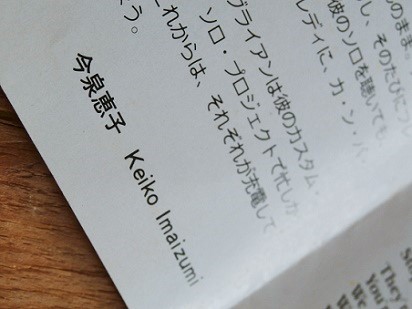 のまま。
し、そのたびに
彼のソロを聴いても
レディに、カ・ン・パ・
ブライアンは彼のカスタム・
ソロ・プロジェクトで忙しか
これからは、それぞれが充電して
う。
今泉恵子 Keiko Imaizumi
They
You
We